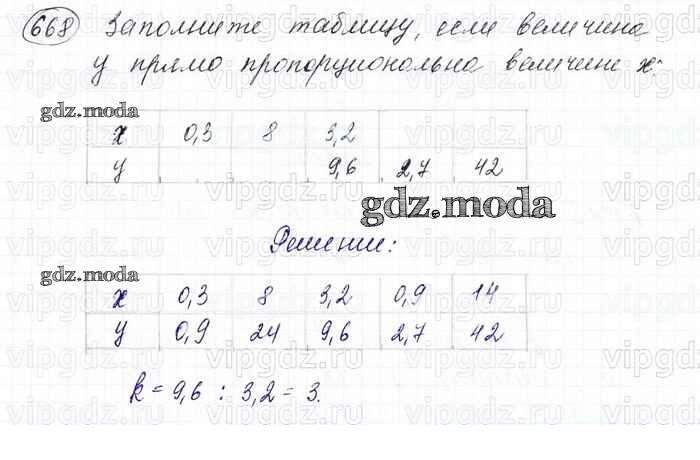 668 Заполните таблицу, если величина
y прямо пропорциональна величине x:
gdz.moda
x 0,3 8 3,2
y 9,6 2,7 42
gdz.moda
Решение:
gdz.moda
x 0,3 8 3,2 0,9 14
y 0,9 24 9,6 2,7 42
k = 9,6 : 3,2 = 3.